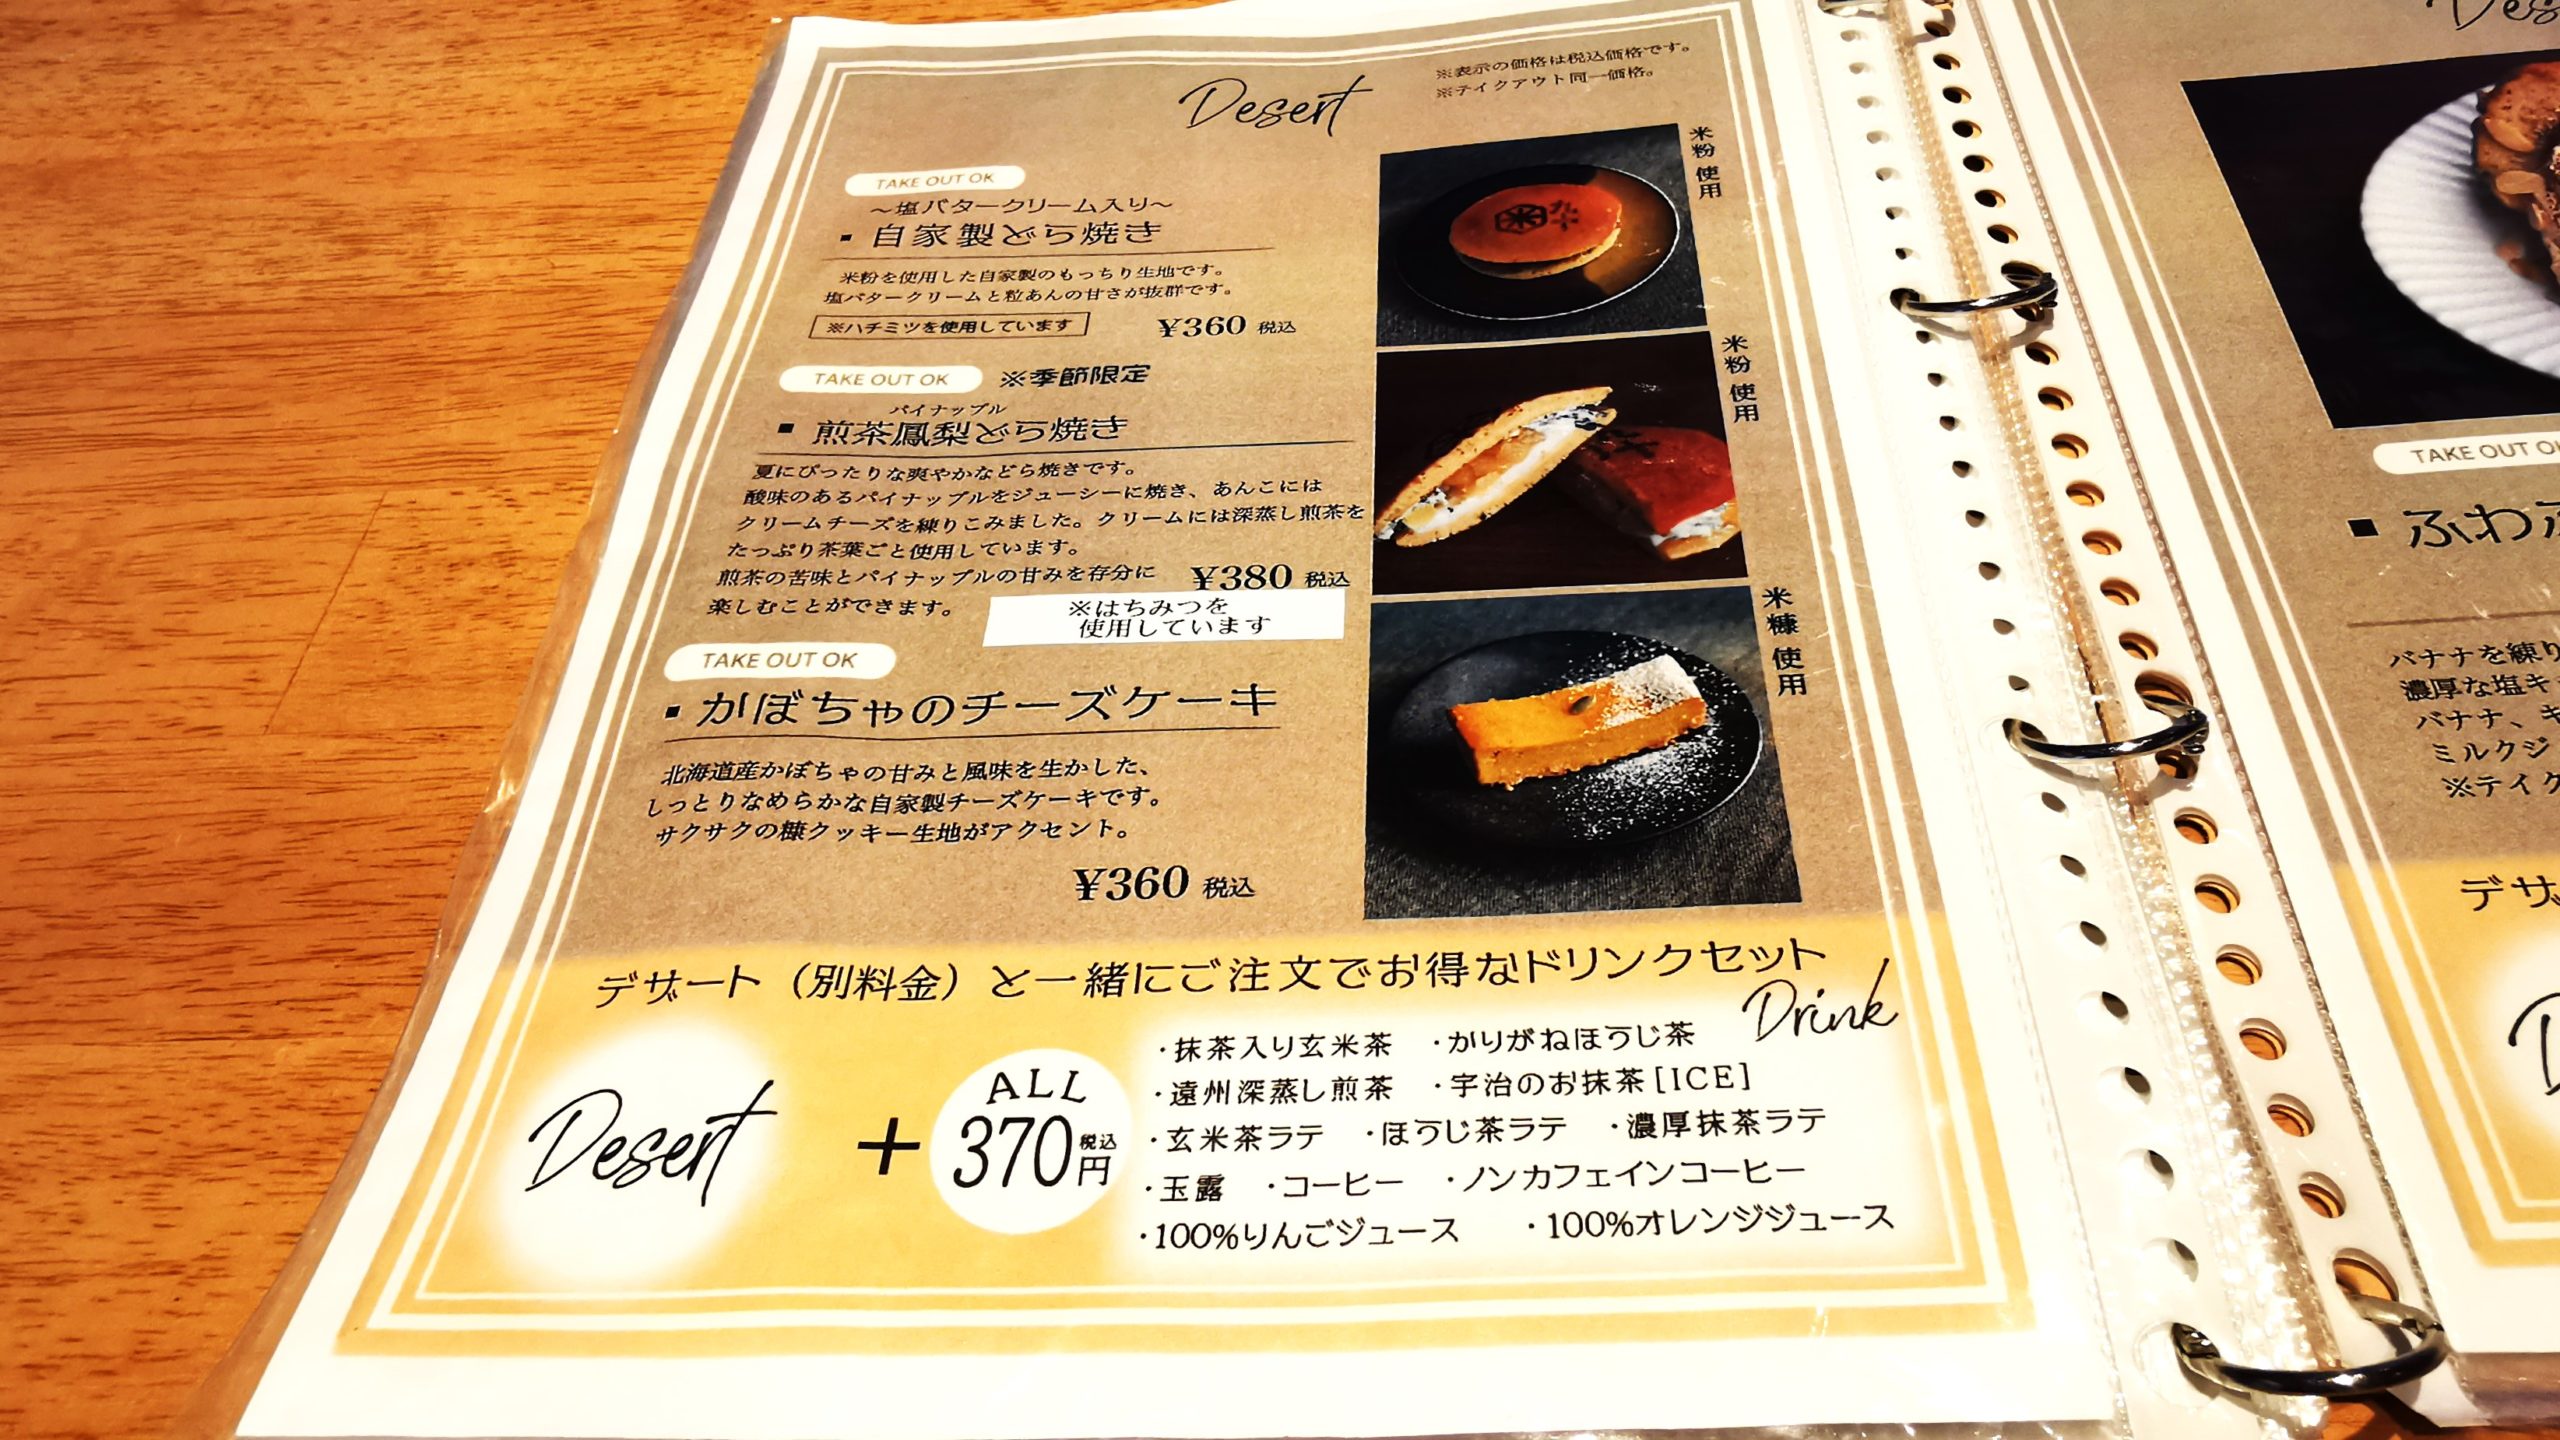 Desert
※表示の価格は税込価格です。
※テイクアウト同一価格。
TAKE OUT OK
～塩バタークリーム入り～
▪ 自家製どら焼き
米粉を使用した自家製のもっちり生地です。
塩バタークリームと粒あんの甘さが抜群です。
※ハチミツを使用しています
¥360 税込
米粉使用
TAKE OUT OK ※季節限定
パイナップル
▪ 煎茶鳳梨どら焼き
夏にぴったりな爽やかなどら焼きです。
酸味のあるパイナップルをジューシーに焼き、あんこには
クリームチーズを練りこみました。クリームには深蒸し煎茶を
たっぷり茶葉ごと使用しています。
煎茶の苦味とパイナップルの甘みを存分に
楽しむことができます。
¥380 税込
※はちみつを
使用しています
米粉使用
TAKE OUT OK
▪ かぼちゃのチーズケーキ
北海道産かぼちゃの甘みと風味を生かした、
しっとりなめらかな自家製チーズケーキです。
サクサクの糠クッキー生地がアクセント。
¥360 税込
米糠使用
デザート（別料金）と一緒にご注文でお得なドリンクセット
Drink
Desert + ALL 370円 税込
・抹茶入り玄米茶 ・かりがねほうじ茶
・遠州深蒸し煎茶 ・宇治のお抹茶[ICE]
・玄米茶ラテ ・ほうじ茶ラテ ・濃厚抹茶ラテ
・玉露 ・コーヒー ・ノンカフェインコーヒー
・100%りんごジュース ・100%オレンジジュース
TAKE OUT
▪ ふわ
バナナを練り
濃厚な塩キ
バナナ、キ
ミルクジ
※テイク
デザ